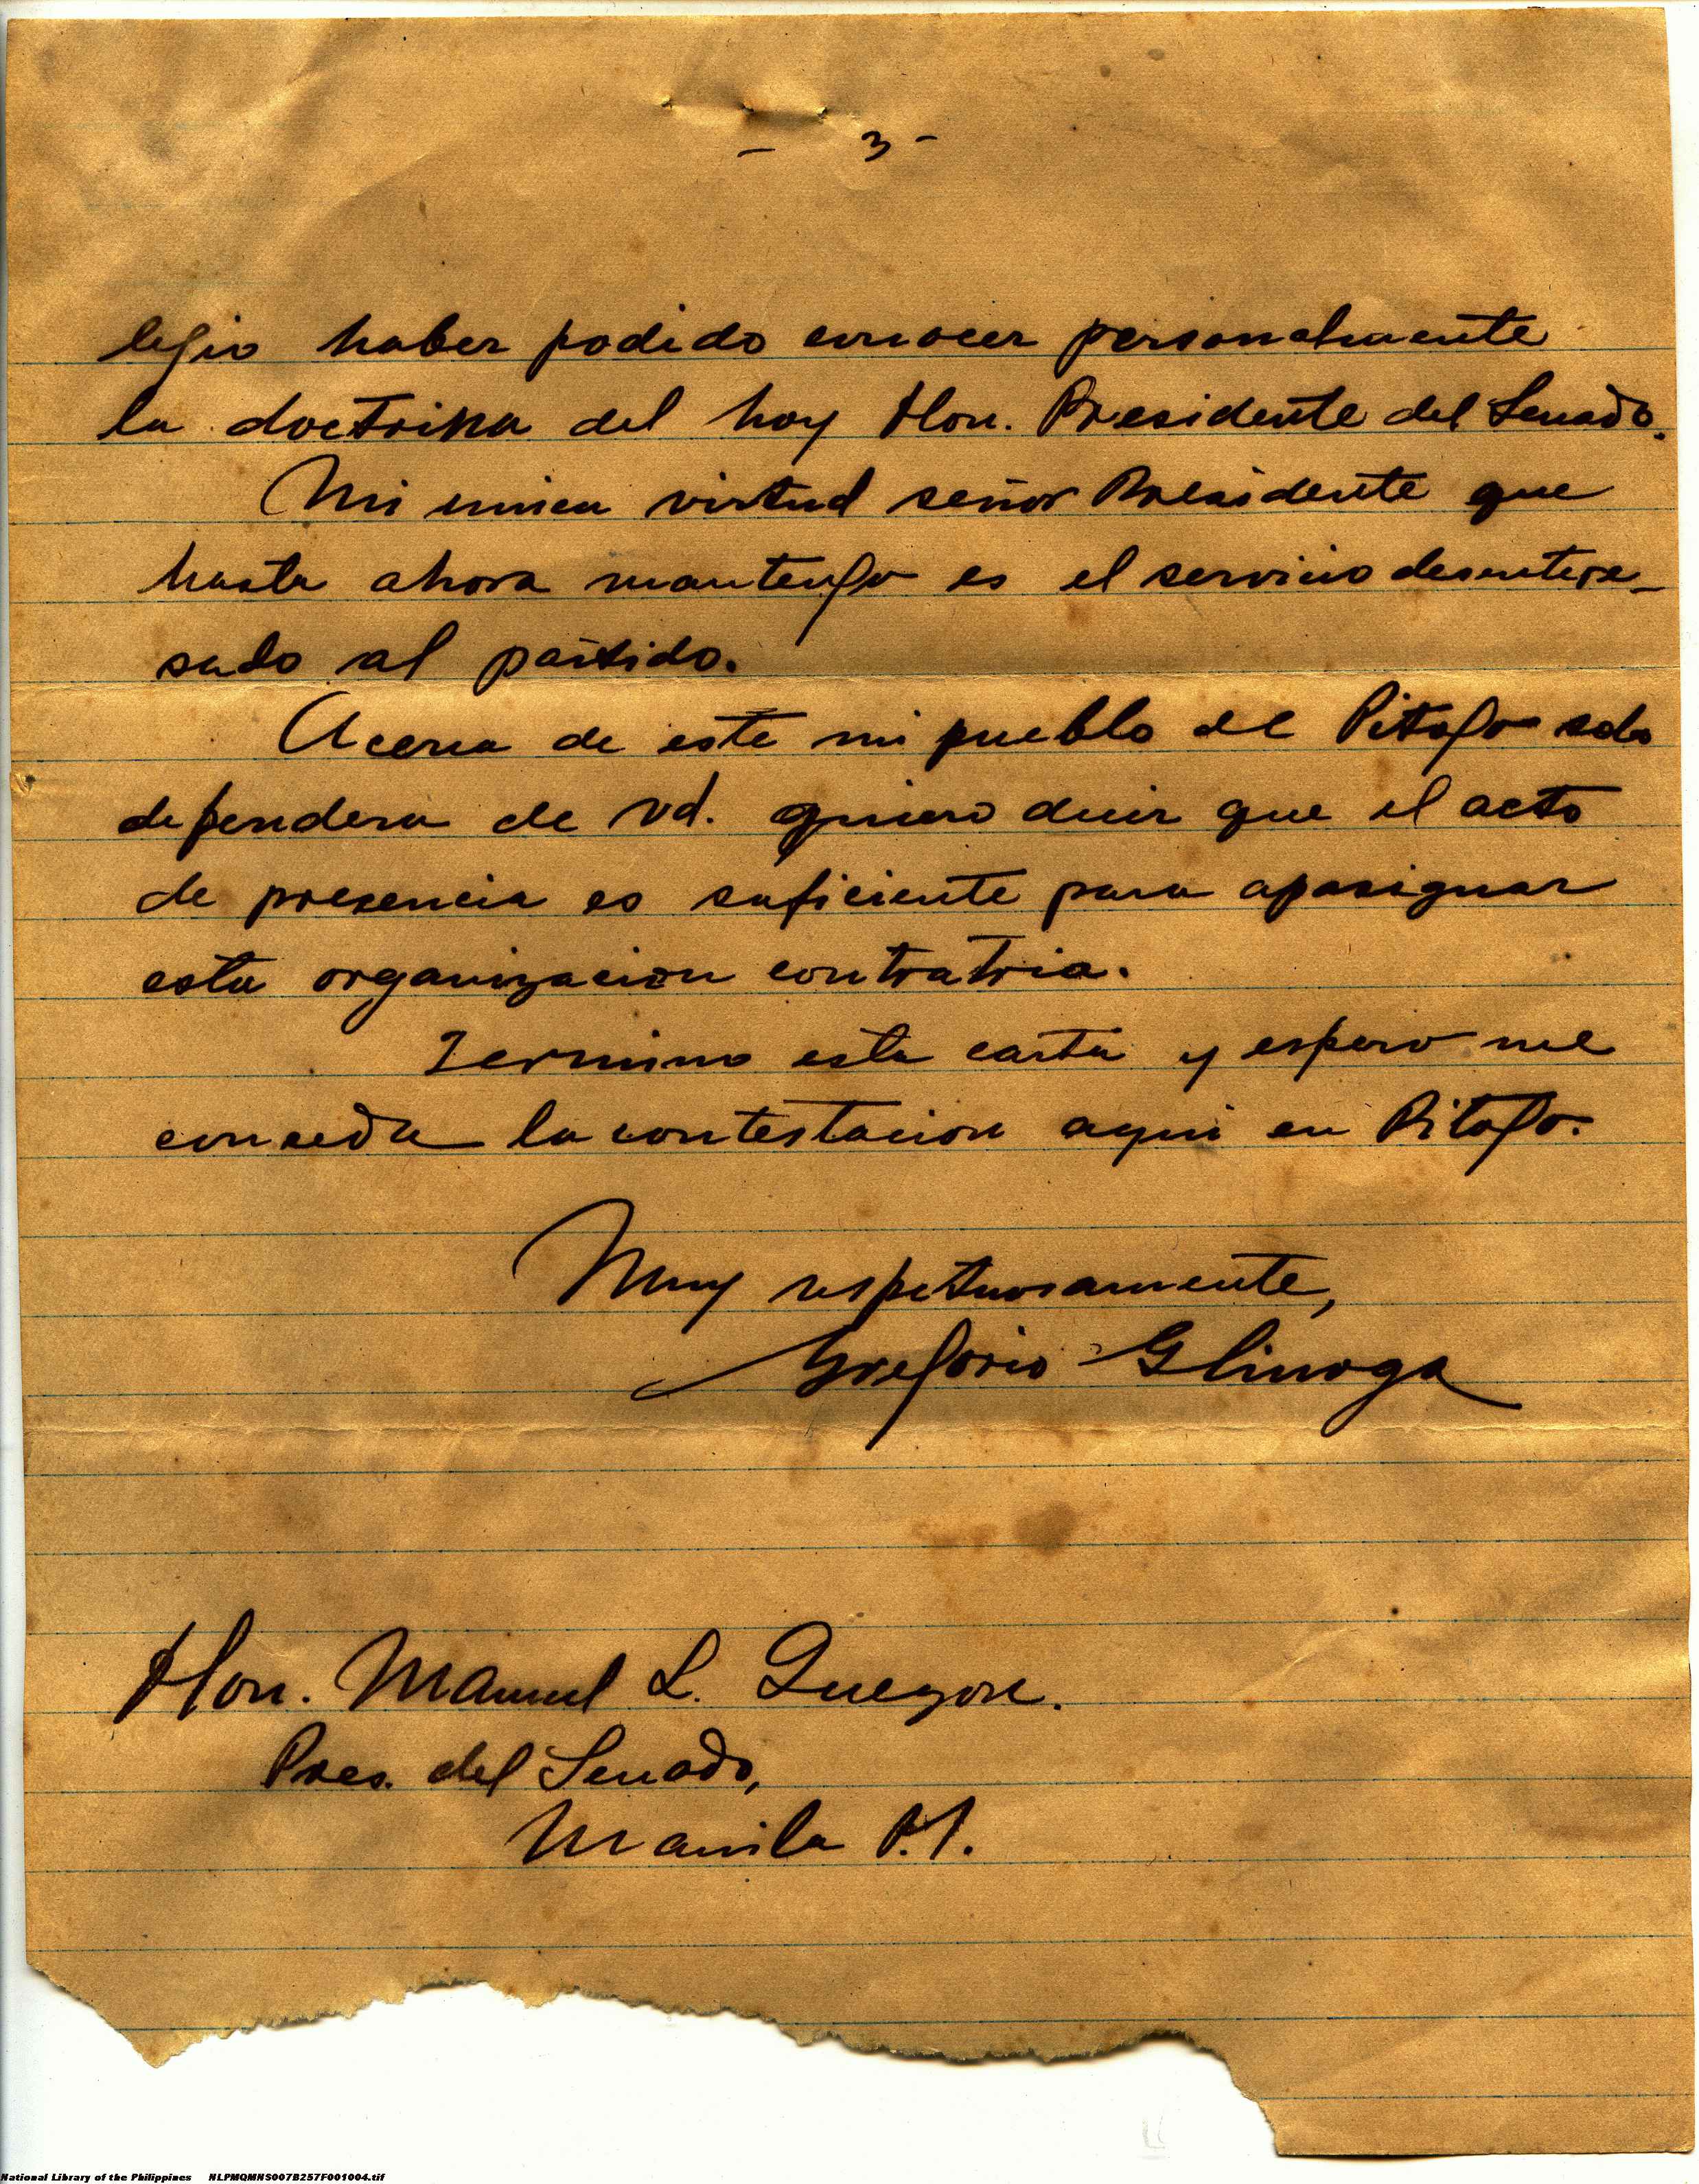 - 3 -
legio haber podido conocer personalmente
la doctrina del hoy Hon. Presidente del Senado.
Mi unica virtud señor Presidente que
hasta ahora mantengo es el servicio desintere-
sado al partido.
Acerca de este mi pueblo de Pitogo solo
dependera de vd. quiero decir que el acto
de presencia es suficiente para apasiguar
esta organizacion contratria.
Termino esta carta y espero me
conceda la contestacion aqui en Pitogo.
Muy respetuosamente,
Gregorio Glinoga
Hon. Manuel L. Quezon.
Pres. del Senado,
Manila P.I.
National Library of the Philippines NLPMQMNS007B257F001004.tif